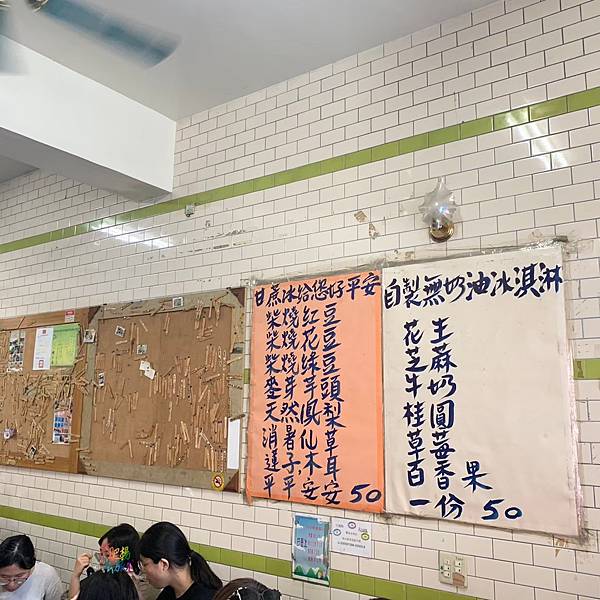 甘蔗冰給您好平安
柴燒紅豆
柴燒花豆
柴燒綠豆
麥芽芋頭
天然鳳梨
消暑仙草
蓮子,木耳
平平,安安50
自製無奶油冰淇淋
花生
芝麻
牛奶
桂圓
草莓
百香果
一份50